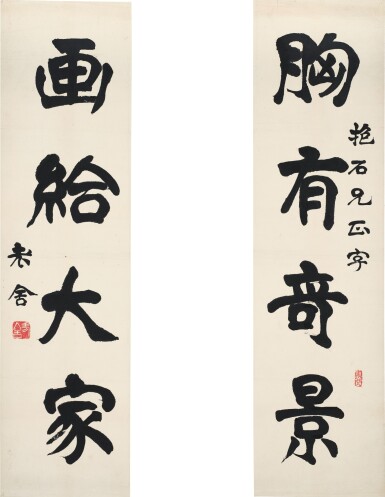 胸有奇景
抱石兄正字
画给大家
老舍